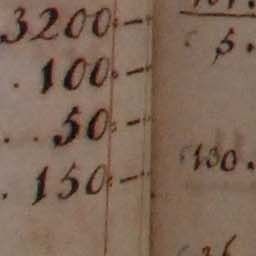 3200.–
. 100.–
. . 50.–
. 150.–
5.
130.